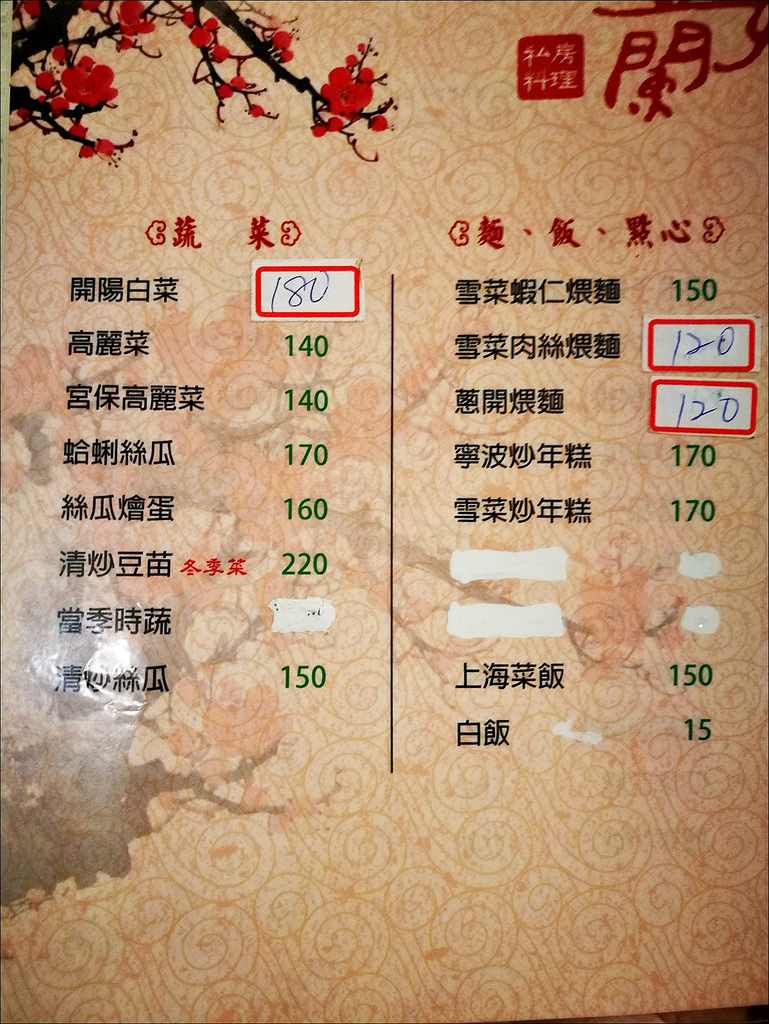 私房
料理
蘭亭
蔬 菜
開陽白菜 180
高麗菜 140
宮保高麗菜 140
蛤蜊絲瓜 170
絲瓜燴蛋 160
清炒豆苗 冬季菜 220
當季時蔬
清炒絲瓜 150
麵、飯、點心
雪菜蝦仁煨麵 150
雪菜肉絲煨麵 120
蔥開煨麵 120
寧波炒年糕 170
雪菜炒年糕 170
上海菜飯 150
白飯 15